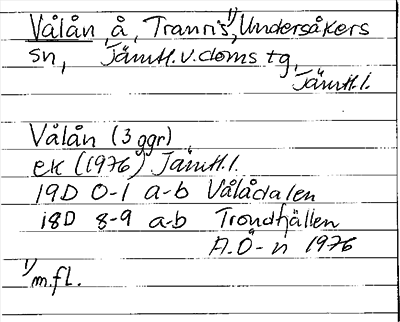 Vålån, å, Tranris¹⁾, Undersåkers
sn, Jämtl.v.doms tg,
Jämtl.l.
Vålån (3 ggr)
ek (1976) Jämtl.l.
19D 0-1 a-b Vålådalen
18D 8-9 a-b Trondfjällen
A.Ö-n 1976
¹⁾m.fl.